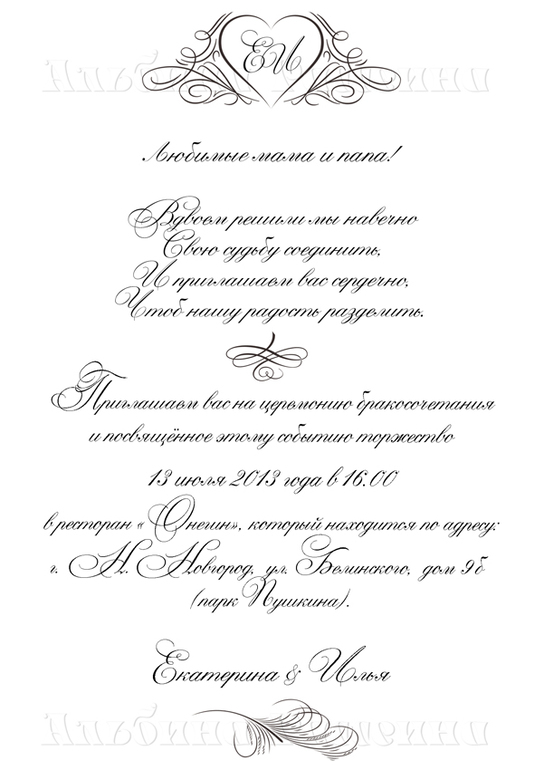 ЕИ
Любимые мама и папа!
Вдвоем решили мы навечно
Свою судьбу соединить,
И приглашаем вас сердечно,
Чтоб нашу радость разделить.
Приглашаем вас на церемонию бракосочетания
и посвящённое этому событию торжество
13 июля 2013 года в 16.00
в ресторан « Онегин», который находится по адресу:
г. Н. Новгород, ул. Белинского, дом 9б
(парк Пушкина).
Екатерина & Илья